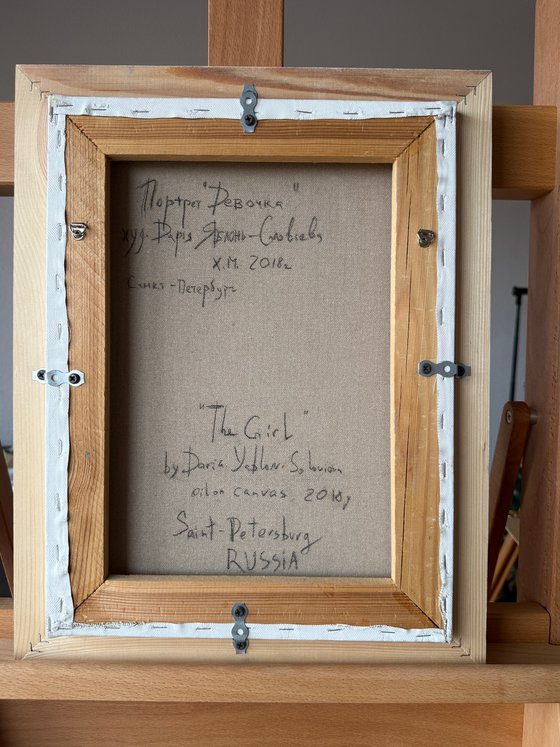 Портрет "Девочка"
худ. Дарья Яблонь-Соловьева
Х.М. 2018г
Санкт-Петербург
"The Girl"
by Daria Yablon-Soloviova
oil on canvas 2018y
Saint-Petersburg
RUSSIA